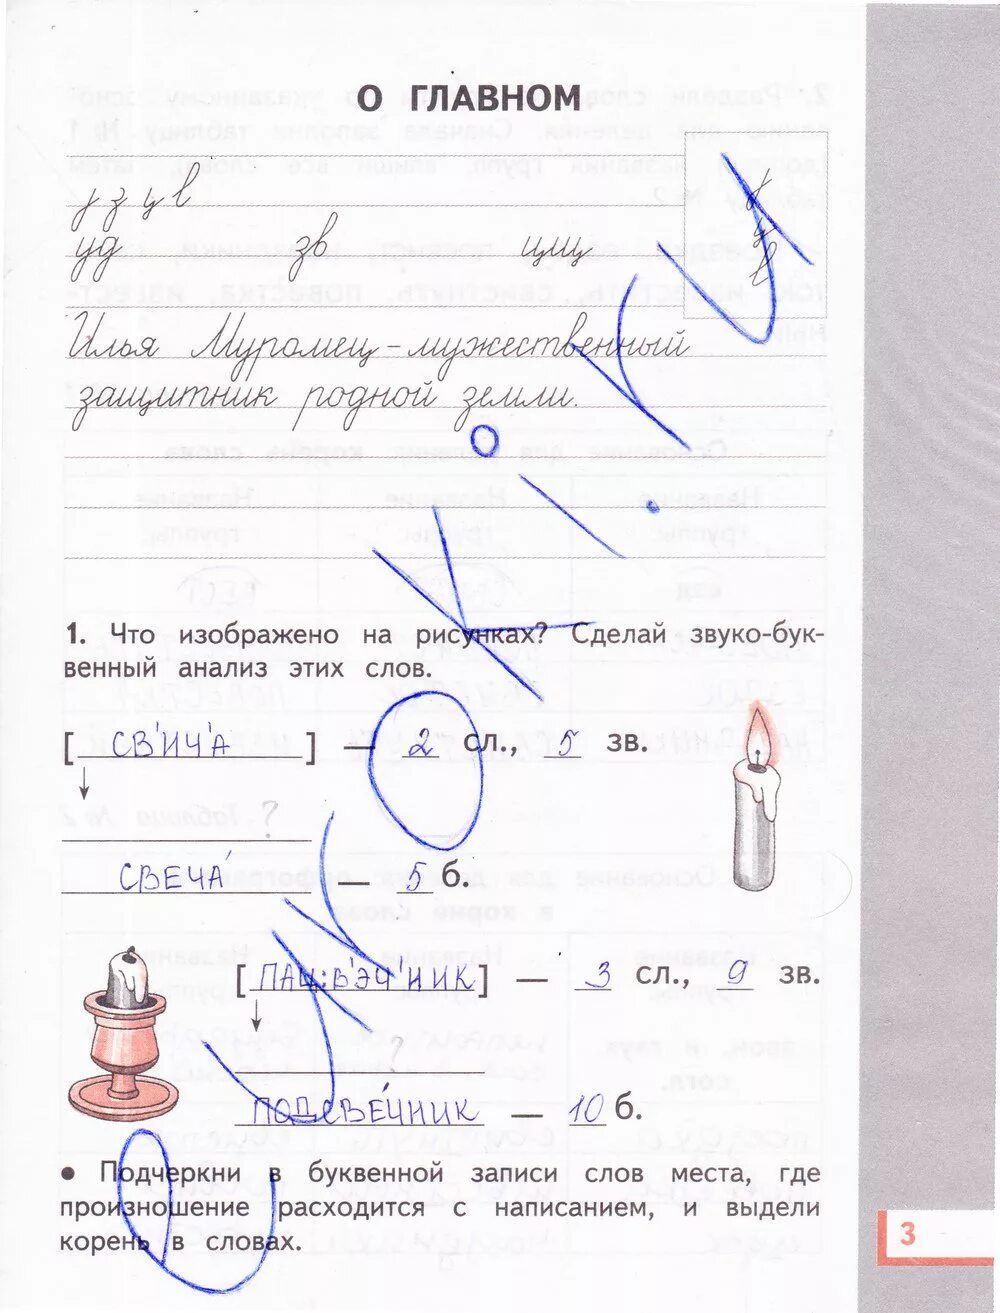 О ГЛАВНОМ
у з ц в
уд зв цщ
Илья Муромец - мужественный
защитник родной земли.
1. Что изображено на рисунках? Сделай звуко-бук-
венный анализ этих слов.
[ СВ'ИЧ'А ] — 2 сл., 5 зв.
?
СВЕЧА́ — 5 б.
— 3 сл., 9 зв.
?
ПОДСВЕ́ЧНИК — 10 б.
• Подчеркни в буквенной записи слов места, где
произношение расходится с написанием, и выдели
корень в словах.
3